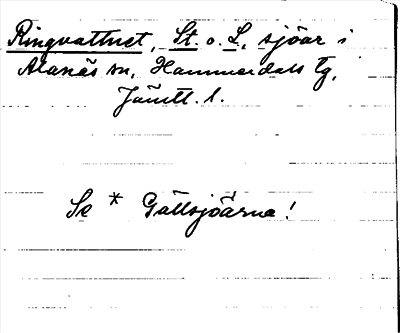 Ringvattnet, St. o. L, sjöar i
Alanäs sn, Hammerdals tg,
Jämtl. l.
Se * Gällsjöarna!